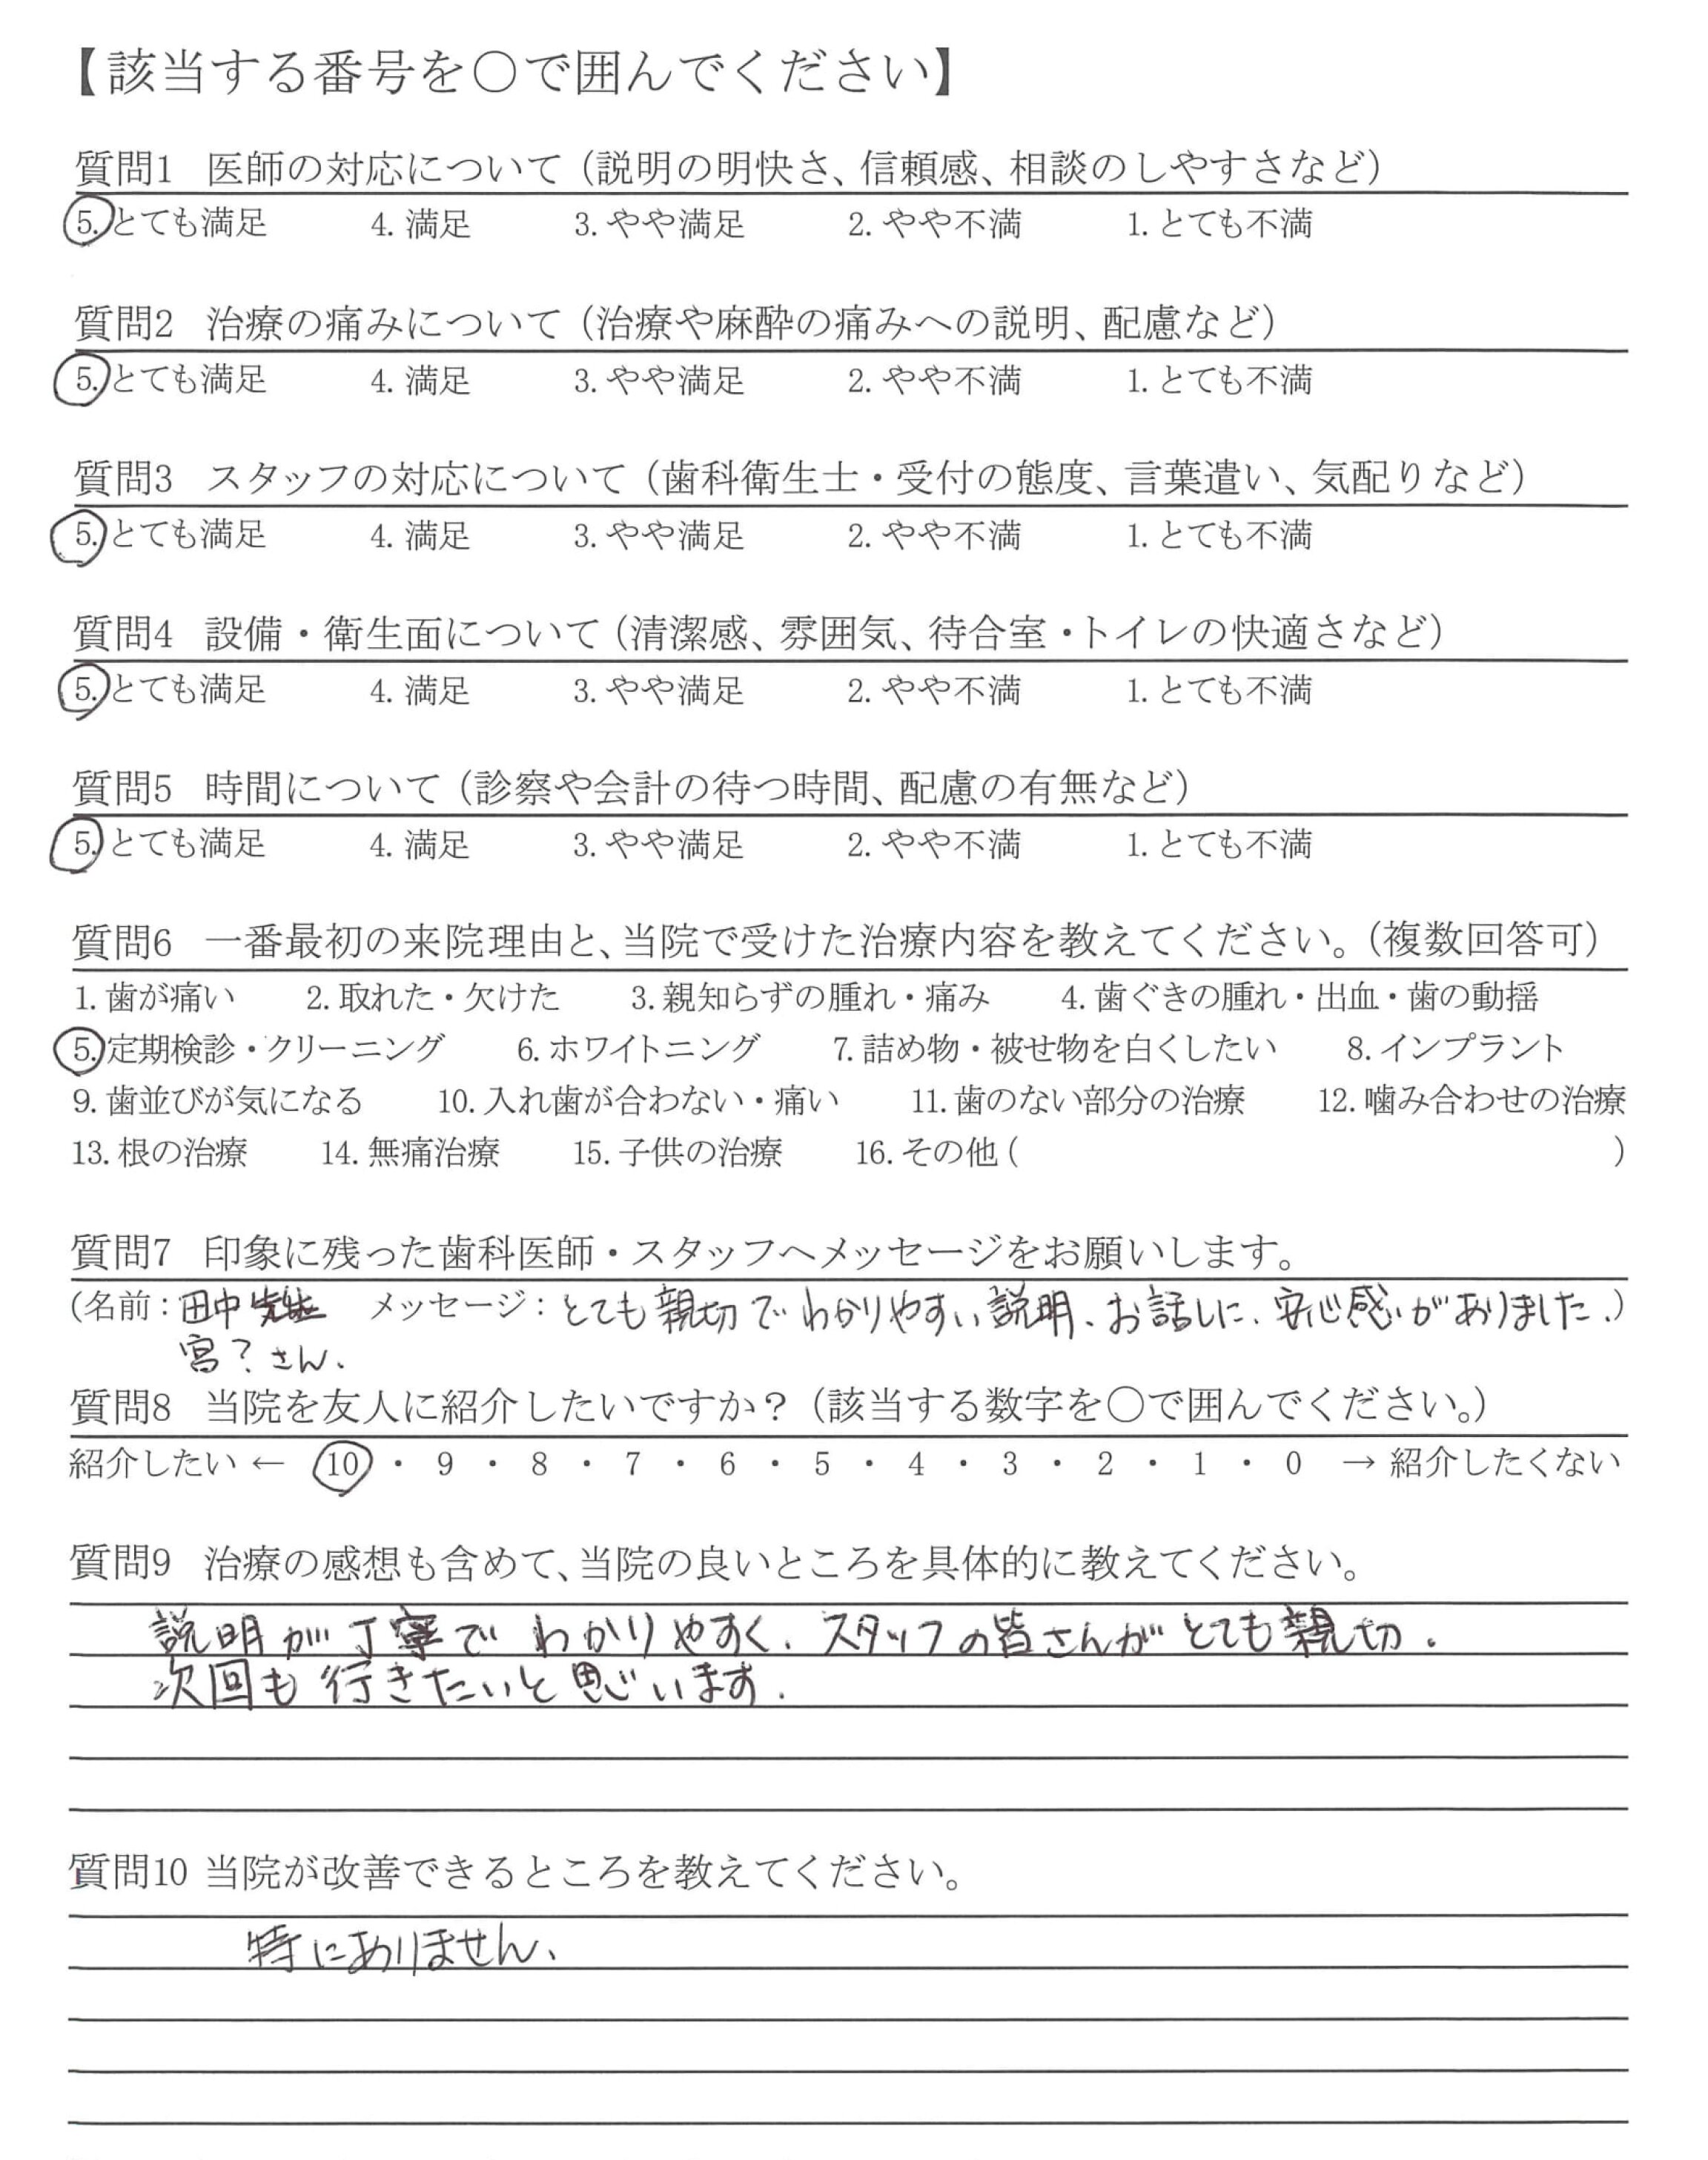 【該当する番号を〇で囲んでください】
質問1 医師の対応について（説明の明快さ、信頼感、相談のしやすさなど）
5. とても満足 4. 満足 3. やや満足 2. やや不満 1. とても不満
質問2 治療の痛みについて（治療や麻酔の痛みへの説明、配慮など）
5. とても満足 4. 満足 3. やや満足 2. やや不満 1. とても不満
質問3 スタッフの対応について（歯科衛生士・受付の態度、言葉遣い、気配りなど）
5. とても満足 4. 満足 3. やや満足 2. やや不満 1. とても不満
質問4 設備・衛生面について（清潔感、雰囲気、待合室・トイレの快適さなど）
5. とても満足 4. 満足 3. やや満足 2. やや不満 1. とても不満
質問5 時間について（診察や会計の待つ時間、配慮の有無など）
5. とても満足 4. 満足 3. やや満足 2. やや不満 1. とても不満
質問6 一番最初の来院理由と、当院で受けた治療内容を教えてください。（複数回答可）
1. 歯が痛い 2. 取れた・欠けた 3. 親知らずの腫れ・痛み 4. 歯ぐきの腫れ・出血・歯の動揺
5. 定期検診・クリーニング 6. ホワイトニング 7. 詰め物・被せ物を白くしたい 8. インプラント
9. 歯並びが気になる 10. 入れ歯が合わない・痛い 11. 歯のない部分の治療 12. 噛み合わせの治療
13. 根の治療 14. 無痛治療 15. 子供の治療 16. その他（ ）
質問7 印象に残った歯科医師・スタッフへメッセージをお願いします。
（名前：田中先生 メッセージ：とても親切でわかりやすい説明、お話しに、安心感がありました。）
宮？さん、
質問8 当院を友人に紹介したいですか？（該当する数字を〇で囲んでください。）
紹介したい ← 10 ・ 9 ・ 8 ・ 7 ・ 6 ・ 5 ・ 4 ・ 3 ・ 2 ・ 1 ・ 0 → 紹介したくない
質問9 治療の感想も含めて、当院の良いところを具体的に教えてください。
説明が丁寧でわかりやすく、スタッフの皆さんがとても親切。
次回も行きたいと思います。
質問10 当院が改善できるところを教えてください。
特にありません、